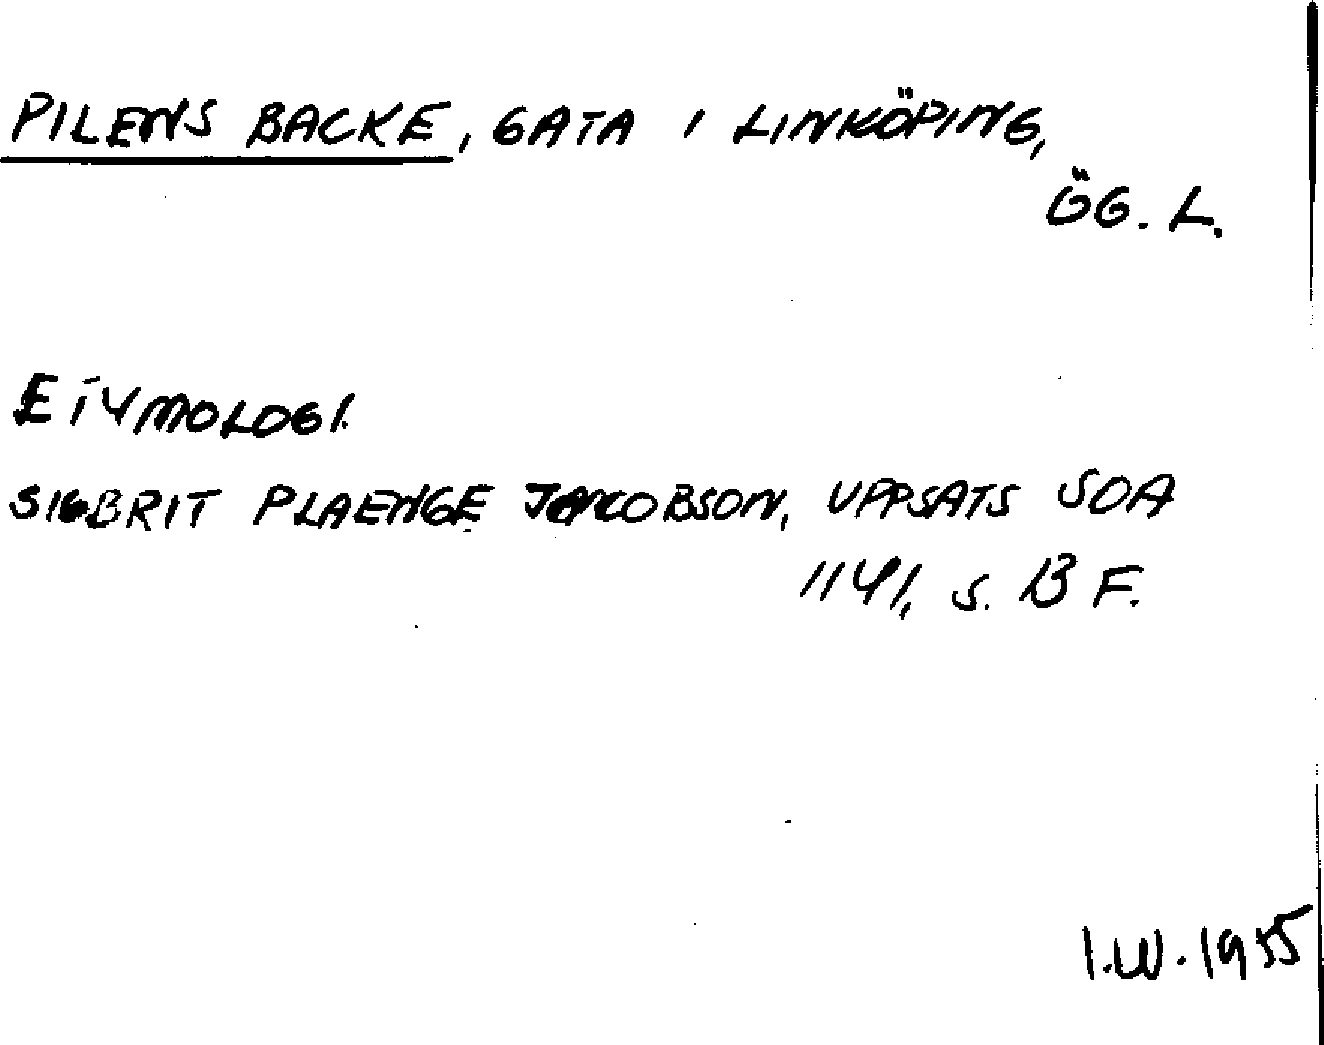 PILENS BACKE, GATA I LINKÖPING,
ÖG. L.
ETYMOLOGI.
SIGBRIT PLAENGE JACOBSON, UPPSATS SOA
1141, S. 13 F.
I.W. 1955